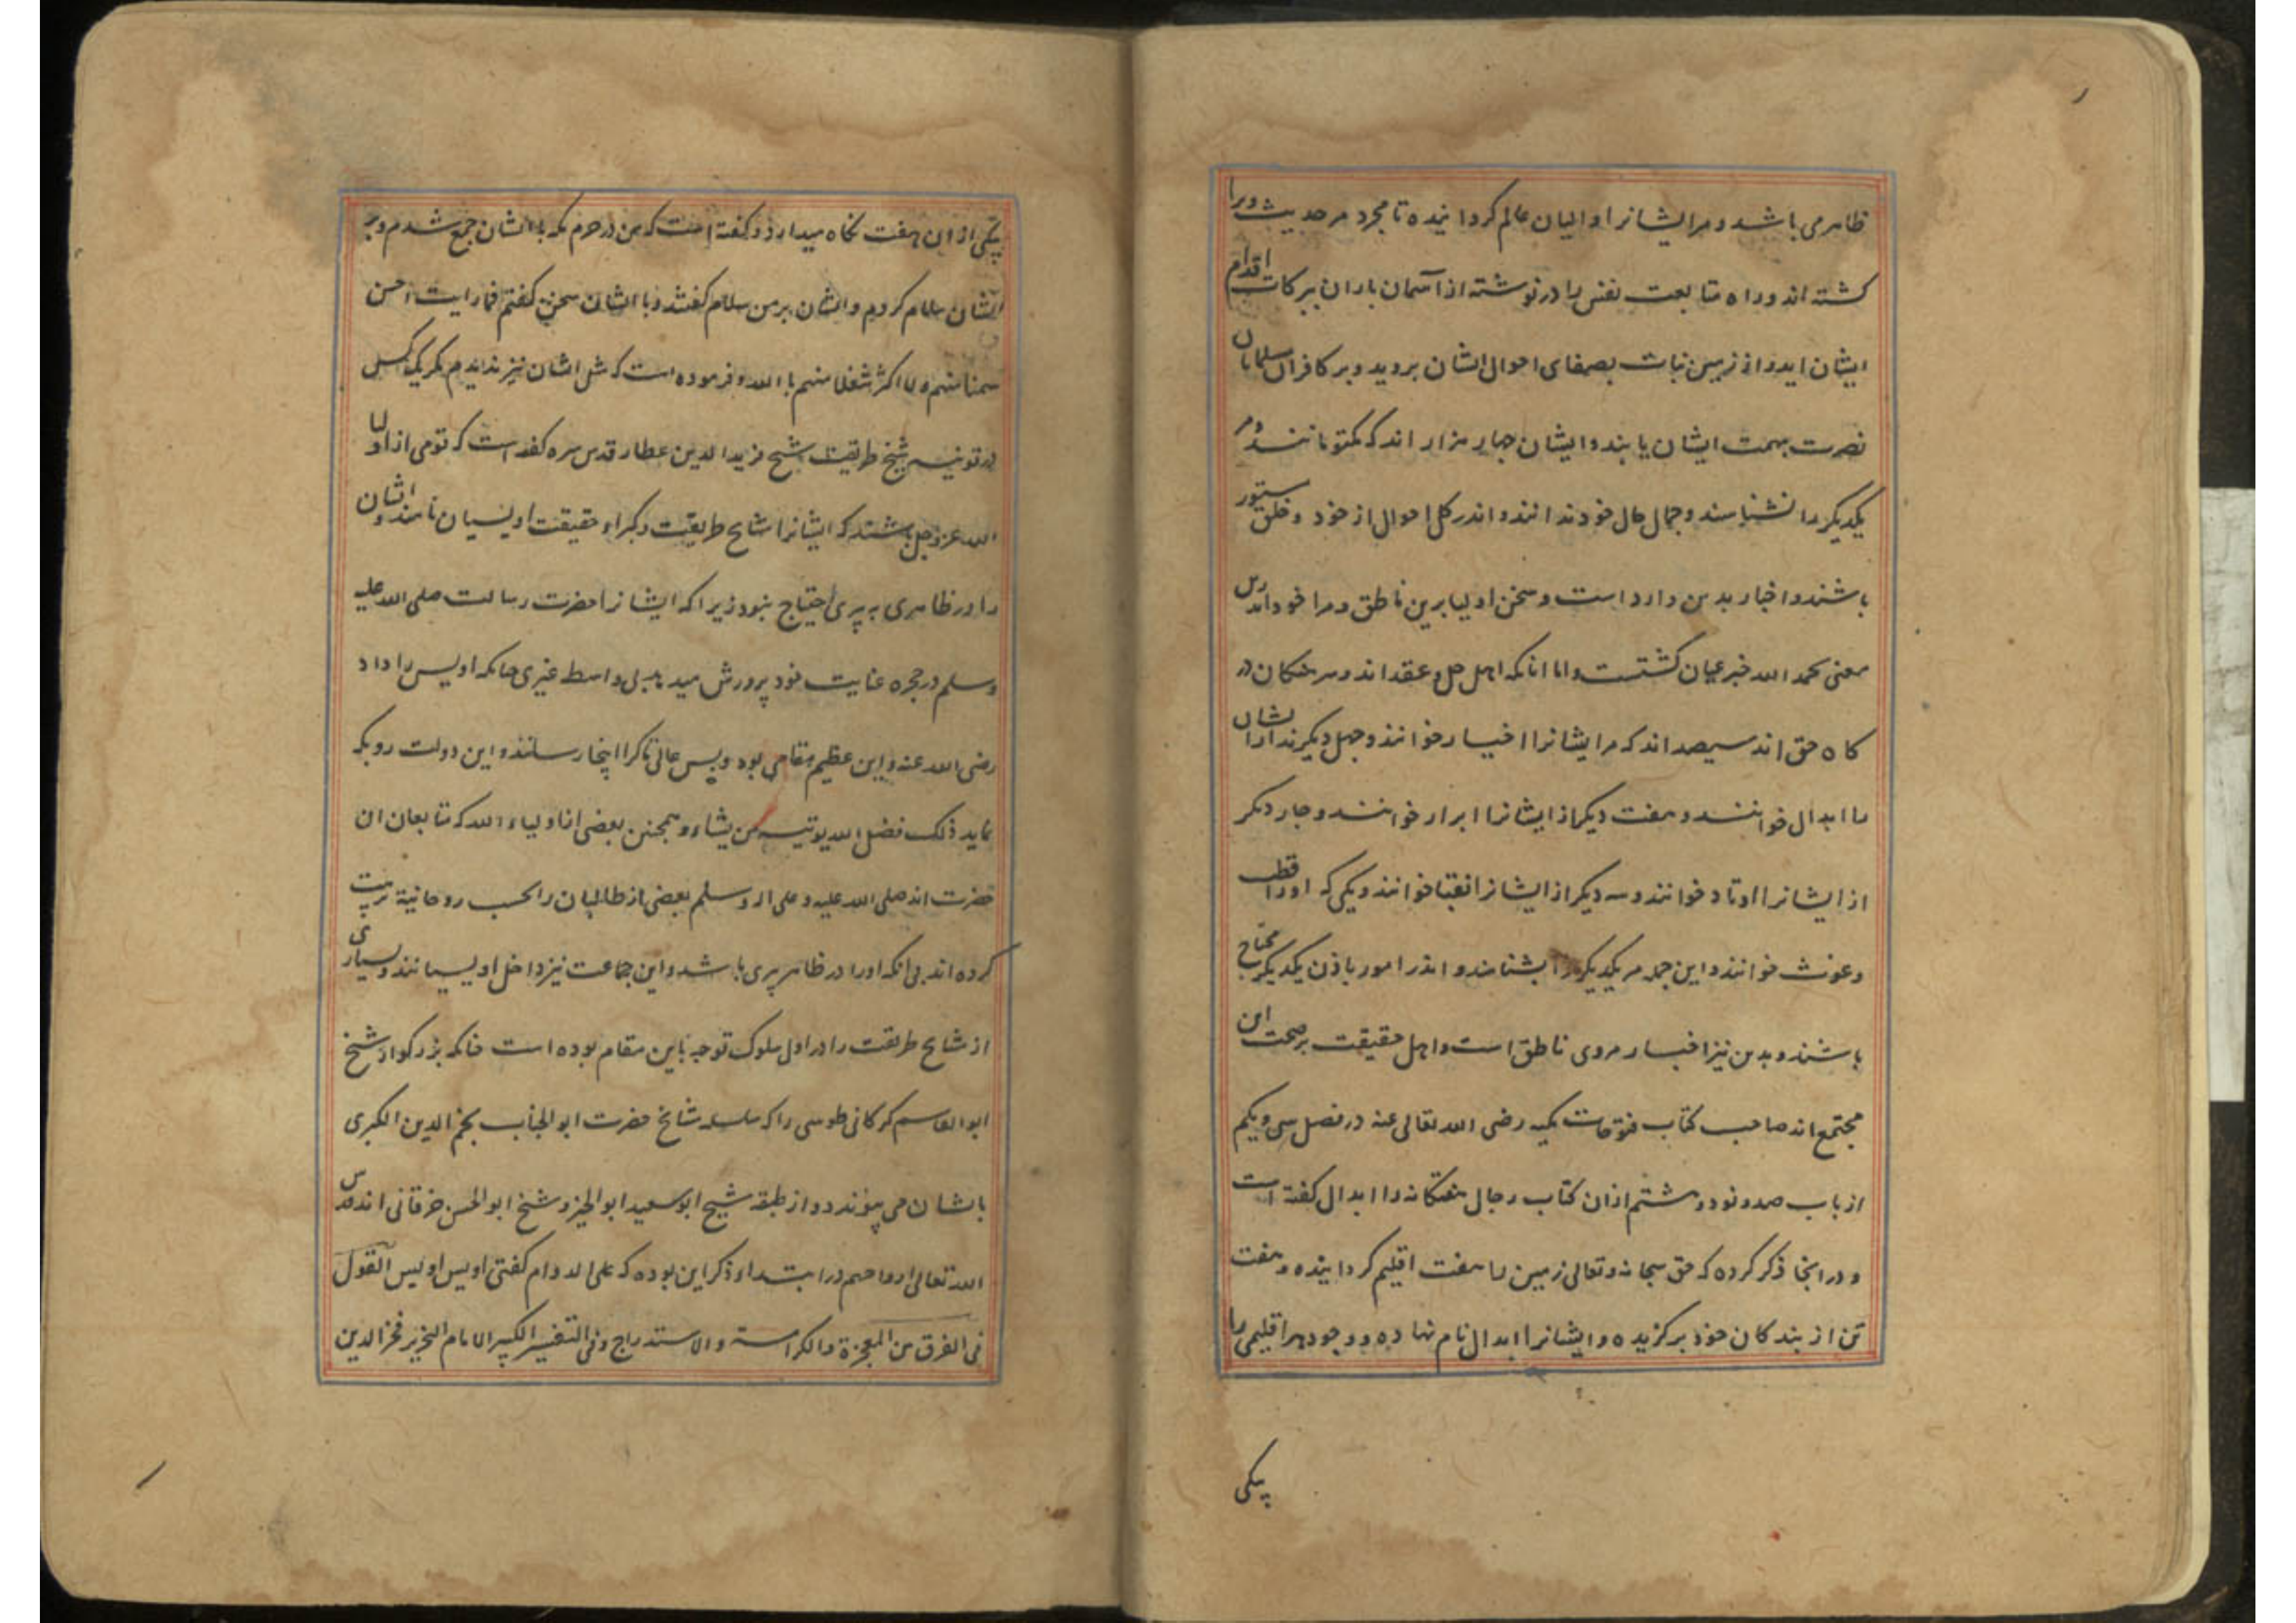 ظاهر می باشد و مر ایشانرا والیان عالم کردانیده تا مجرد مر حدیث ویرا
کشته اند و راه متابعت نفس را در نوشته از آسمان باران ببرکات اقدام
ایشان اید و از زمین نبات بصفای احوال ایشان بروید و بر کافران مسلمانان
نصرت بهمت ایشان یابند و ایشان چهار هزار اند که مکتومانند و مر
یکدیکر را نشناسند و جمال حال خود ندانند و اندر کل احوال از خود و خلق مستور
باشند و اخبار بدین وارد است و سخن اولیا برین ناطق و مرا خود اندرین
معنی بحمد الله خبر عیان کشتست و اما انانکه اهل حل و عقد اند و سرهنکان در
کاه حق اند سیصد اند که مر ایشانرا اخیار خوانند و چهل دیکرند از ایشان
ما ابدال خوانند و هفت دیکر از ایشانرا ابرار خوانند و چار دیکر
از ایشانرا اوتاد خوانند و سه دیکر از ایشانرا نقبا خوانند و یکی که اورا قطب
و غوث خوانند و این جمله مر یکدیکر را بشناسند و اندر امور باذن یکدیکر محتاج
باشند و بدین نیز اخبار مروی ناطق است و اهل حقیقت بر صحت این
مجتمع اند صاحب کتاب فتوحات مکیه رضی الله تعالی عنه در فصل سی و یکم
از باب صد و نود و هشتم از ان کتاب رجال هفتکانه را ابدال کفته است
و در انجا ذکر کرده که حق سبحانه و تعالی زمین را هفت اقلیم کردانیده و هفت
تن از بندکان خود برکزیده و ایشانرا ابدال نام نهاده و وجود هر اقلیمی را
بیکی
بیکی از ان هفت نکاه میدارد و کفته است که من در حرم مکه با ایشان جمع شدم و بر
ایشان سلام کردیم و ایشان بر من سلام کفتند و با ایشان سخن کفتم فما رایت احسن
سمتا منهم و لا اکثر شغلا منهم با الله و فرموده است که مثل ایشان نیز ندیدم مکر یک کس
در قونیه شیخ طریقت شیخ فرید الدین عطار قدس سره کفته است که قومی از اولیا
الله عز و جل باشند که ایشانرا مشایخ طریقت و کبراء حقیقت اویسیان نامند و ایشان
را در ظاهری به پیری احتیاج نبود زیرا که ایشانرا حضرت رسالت صلی الله علیه
و سلم در حجره عنایت خود پرورش میدهد بی واسطه غیری چنانکه اویس را داد
رضی الله عنه و این عظیم مقامی بود و بس عالی تا کرا اینجا رسانند و این دولت رو بکه
نماید ذلک فضل الله یوتیه من یشاء و همچنین بعضی از اولیاء الله که متابعان ان
حضرت اند صلی الله علیه و علی اله و سلم بعضی از طالبان را بحسب روحانیة تربیت
کرده اند بی انکه اورا در ظاهر پیری باشد و این جماعت نیز داخل اویسیانند و بسیاری
از مشایخ طریقت را در اول سلوک توجه باین مقام بوده است چنانکه بزرکوار شیخ
ابو القاسم کرکانی طوسی را که سلسله مشایخ حضرت ابو الجناب نجم الدین الکبری
بایشان می پیوندد و از طبقه شیخ ابو سعید ابو الخیر و شیخ ابو الحسن خرقانی اند قدس
الله تعالی ارواحهم در ابتداء ذکر این بوده که علی الدوام کفتی اویس اویس القول
فی الفرق من المعجزة و الکرامة و الاستدراج و فی التفسیر الکبیر للامام النحریر فخر الدین